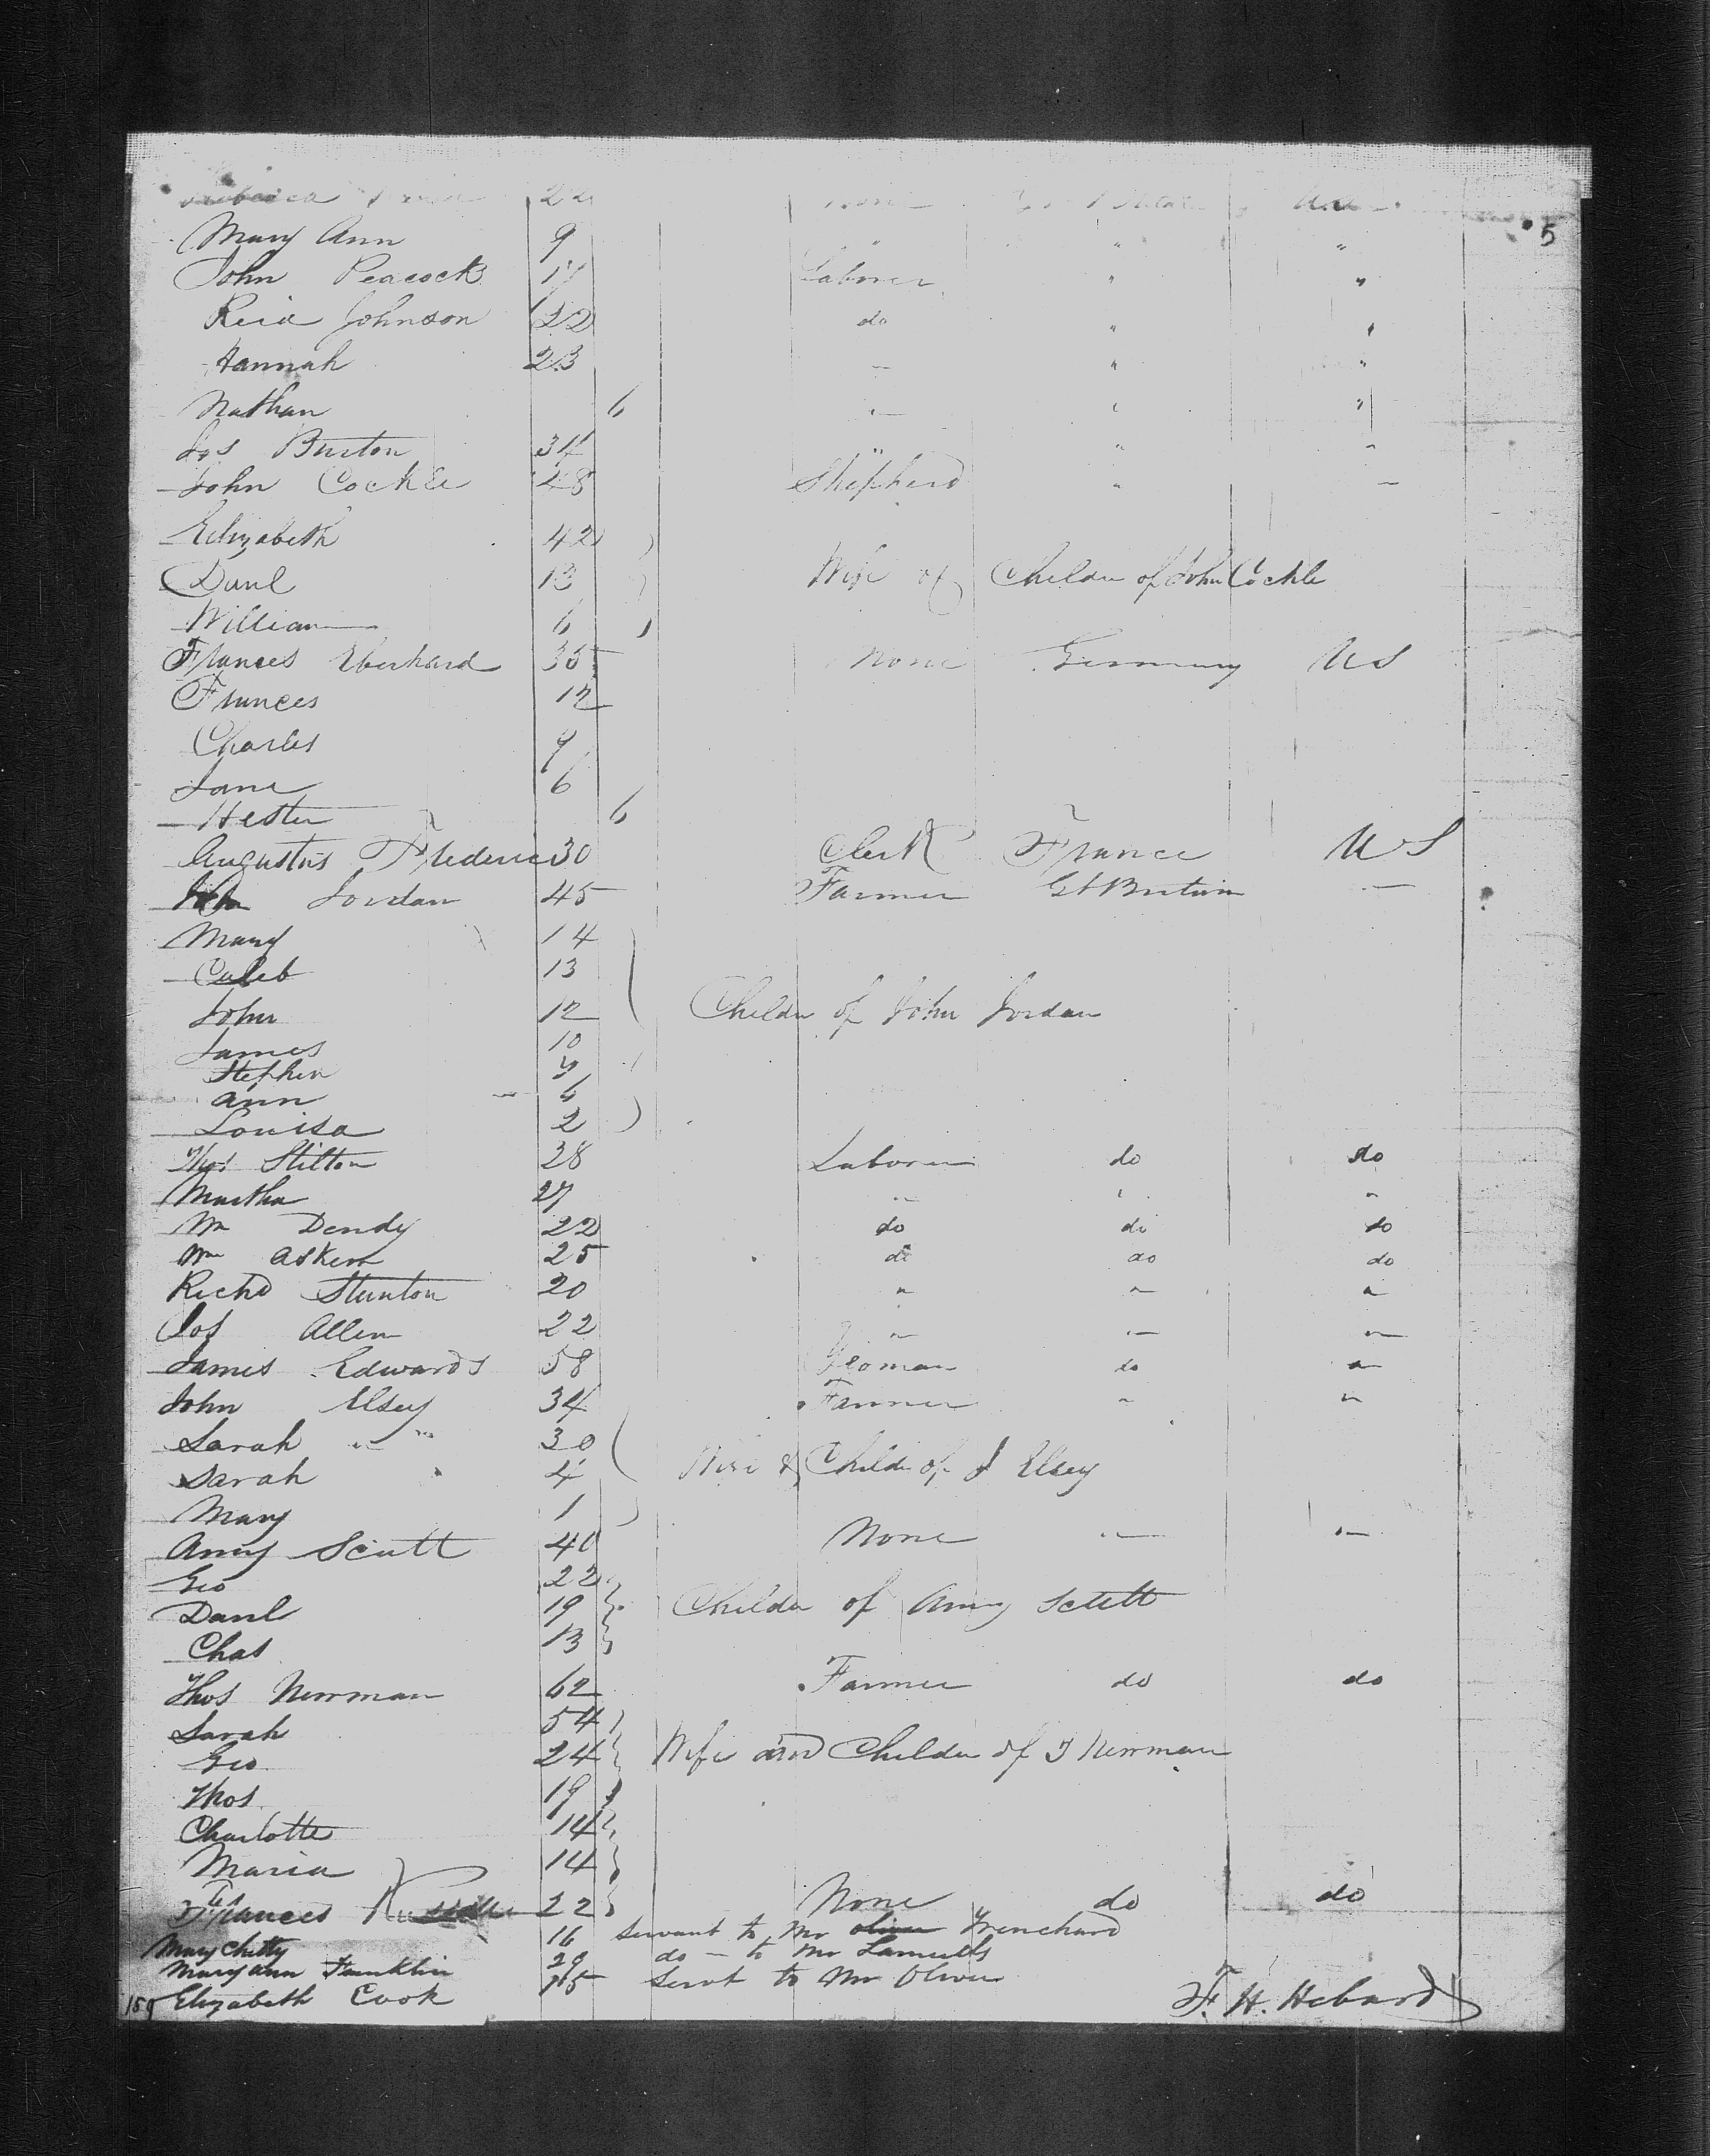 22
5
Mary Ann 9 " " "
John Peacock 17 Laborer " "
Johnson 22 do " "
Hannah 23 — " "
Nathan 6
Jos Burton 34 " " "
John Cockle 28 Shepherd " "
Elizabeth 42
Danl 13 Wife & Childn of John Cockle
William 6
Frances Eberhard 35 None Germany US
Frances 12
Charles 9
Jane 6
Hester 6
Augustus Frederic 30 Clerk France US
John Jordan 45 Farmer Gt Britain —
Mary 14
Caleb 13
John 12 Childn of John Jordan
James 10
Stephen
Ann 6
Louisa 2
Thos Stilton 28 Laborer do do
Martha 27 " " "
Wm Dendy 22 do do do
Wm Askem 25 do do do
Richd Stunton 20 " " "
Jos Allen 22 " " "
James Edwards 58 Yeoman do "
John Elsey 34 Farmer " "
Sarah " " 30
Sarah 4 Wife & Childn of J Elsey
Mary 1
Amy Scutt 40 None " "
Geo 22
Danl 19 Childn of Amy Scutt
Chas 13
Thos Newman 62 Farmer do do
Sarah 54
Geo 24 Wife and Childn of T Newman
Thos 19
Charlotte 14
Maria 14
Frances 22 None do do
Mary Chitty 16 Servant to Mr Trenchard
Mary Ann Franklin 29 do — to Mr
159 Elizabeth Cook 15 Servt to Mr Oliver
F. H. Hebard